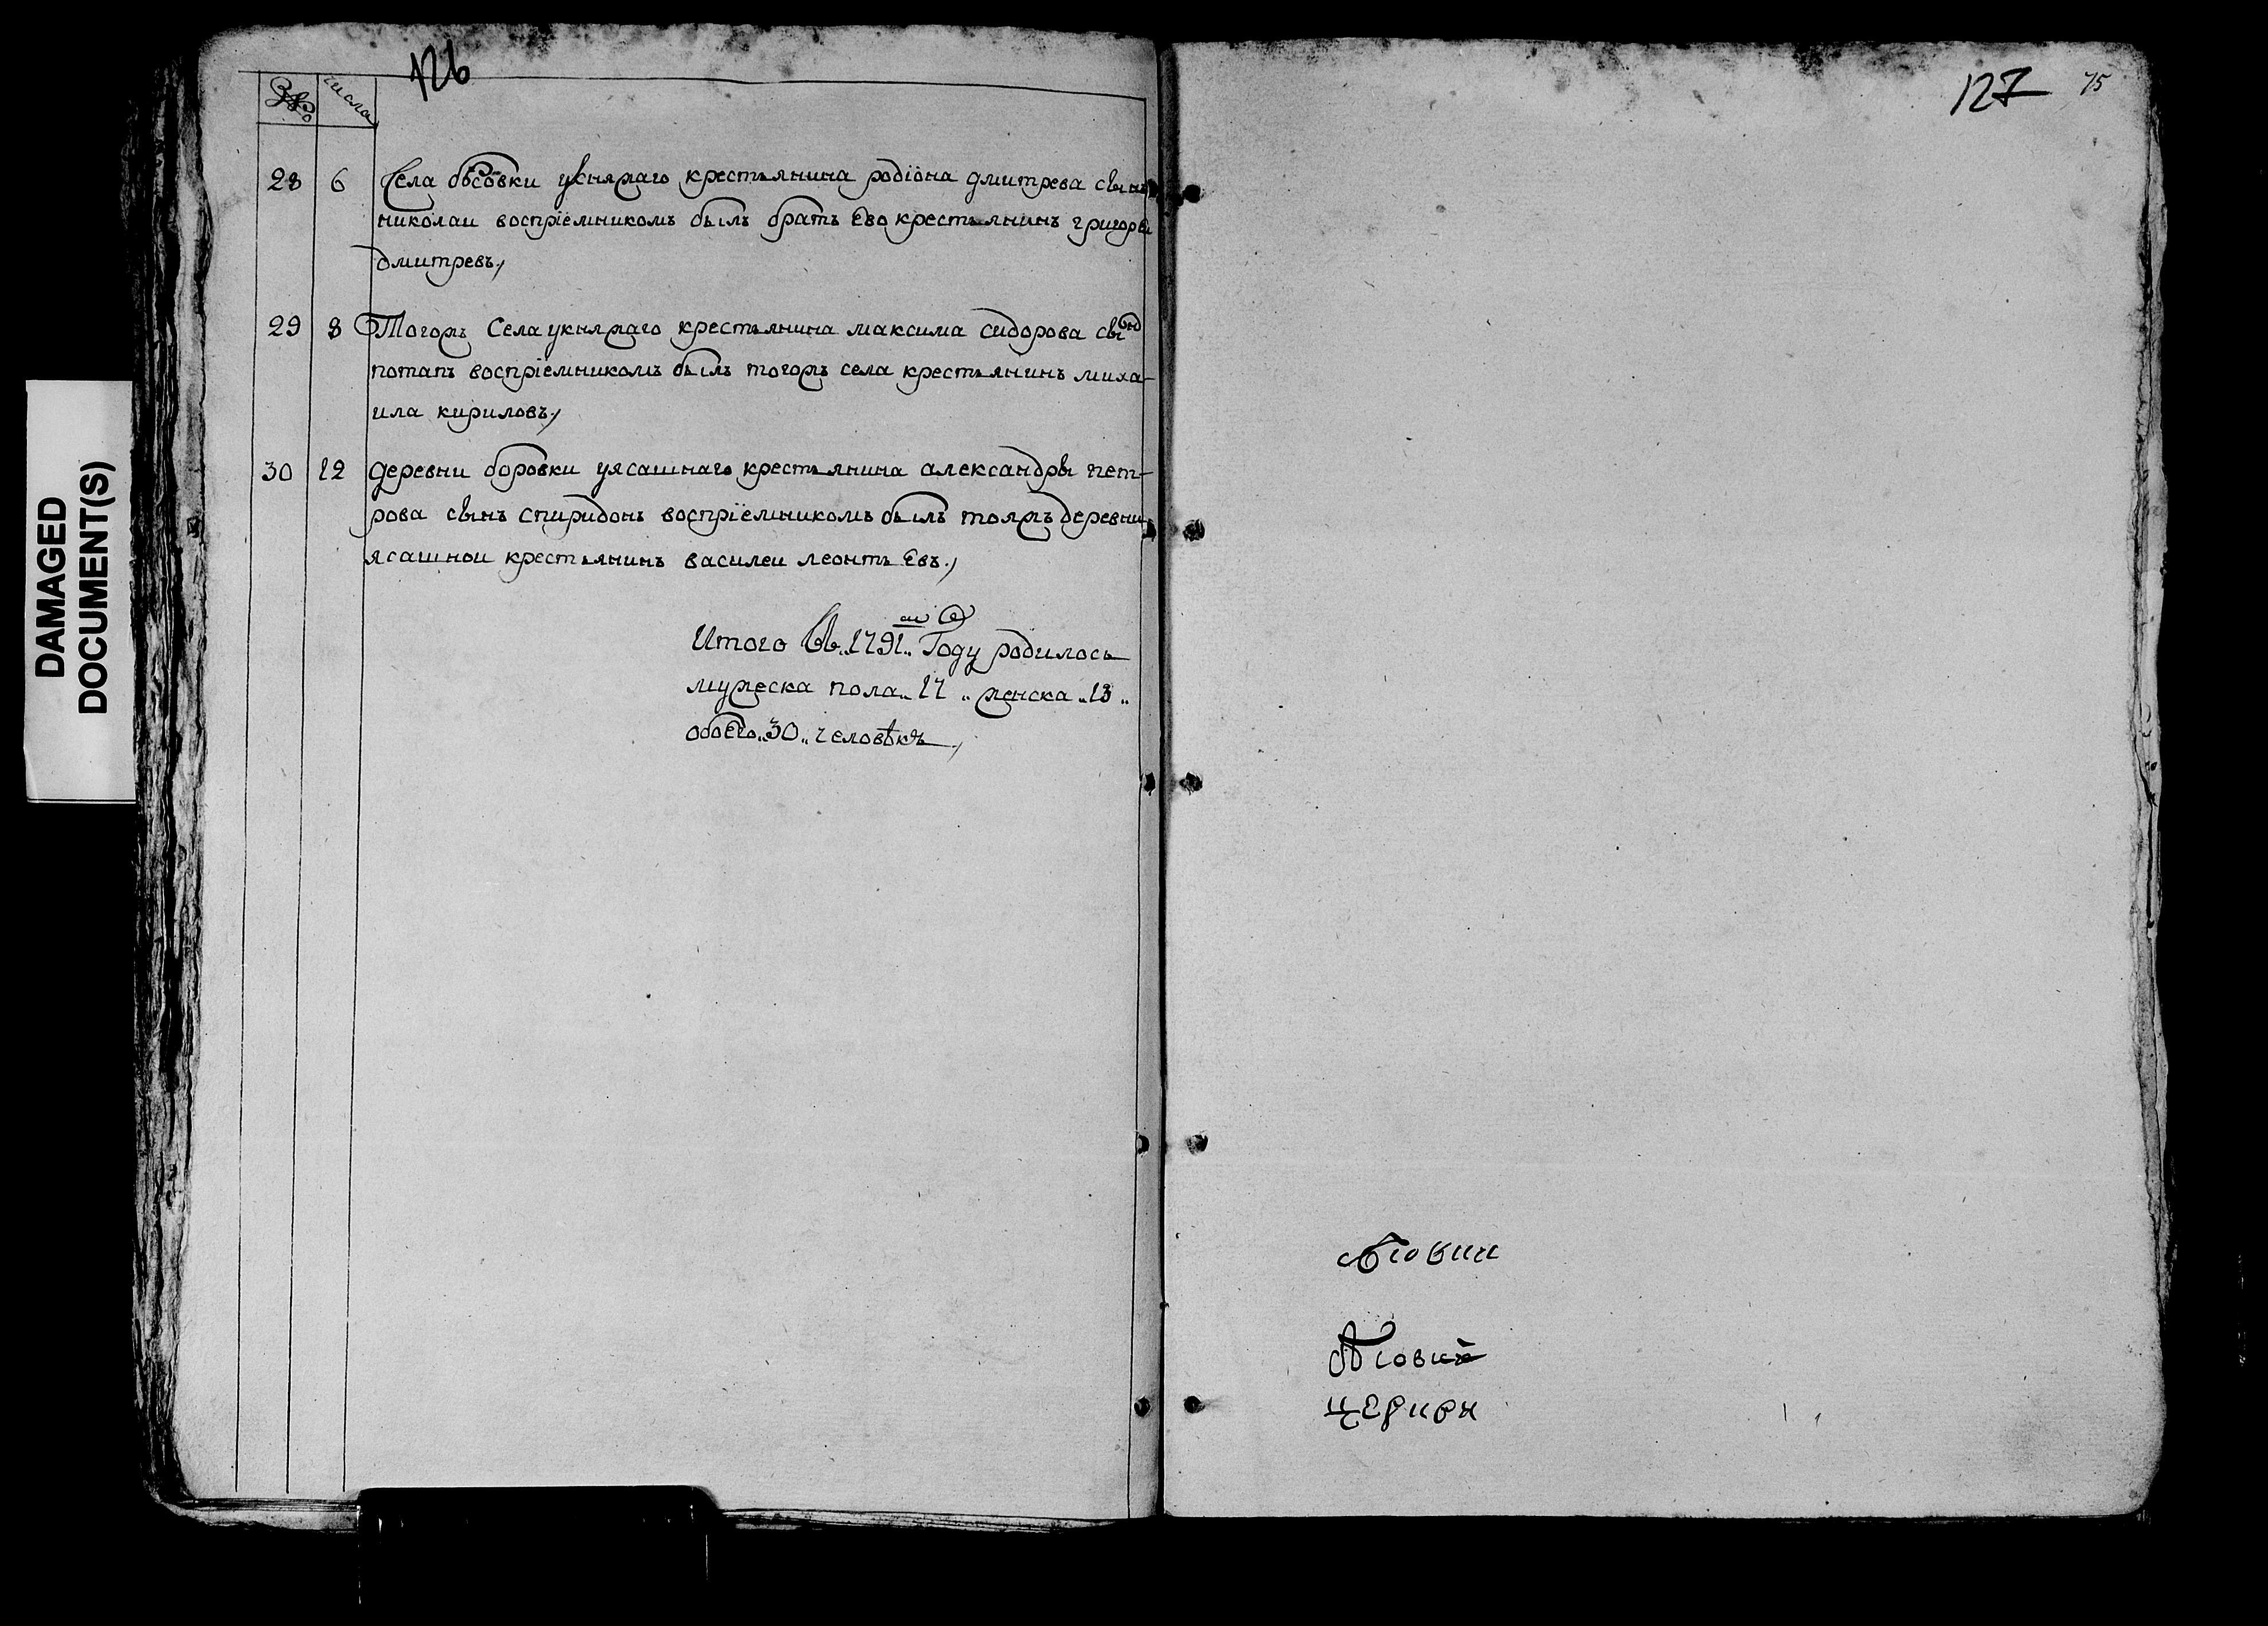 DAMAGED
DOCUMENT(S)
126
№ числа
28 6 Села укняжаго крестьянина родіона дмитрева сынъ
николаи воспріемникомъ былъ братъ Ево крестьянинъ григореи
дмитревъ
29 8 Тогожъ Села укняжаго крестьянина максима сидорова сынъ
потапъ воспріемникомъ былъ тогожъ села крестьянинъ миха-
ила кириловъ
30 12 деревни боровки уясашнаго крестьянина александры пет-
рова сынъ спиридонъ воспріемникомъ былъ тояжъ деревни
ясашнои крестьянинъ василеи леонтьЕвъ
Итого Въ 1791 м Году родилось
мужеска пола 17 женска 13
обоего 30 человѣкъ
127 75